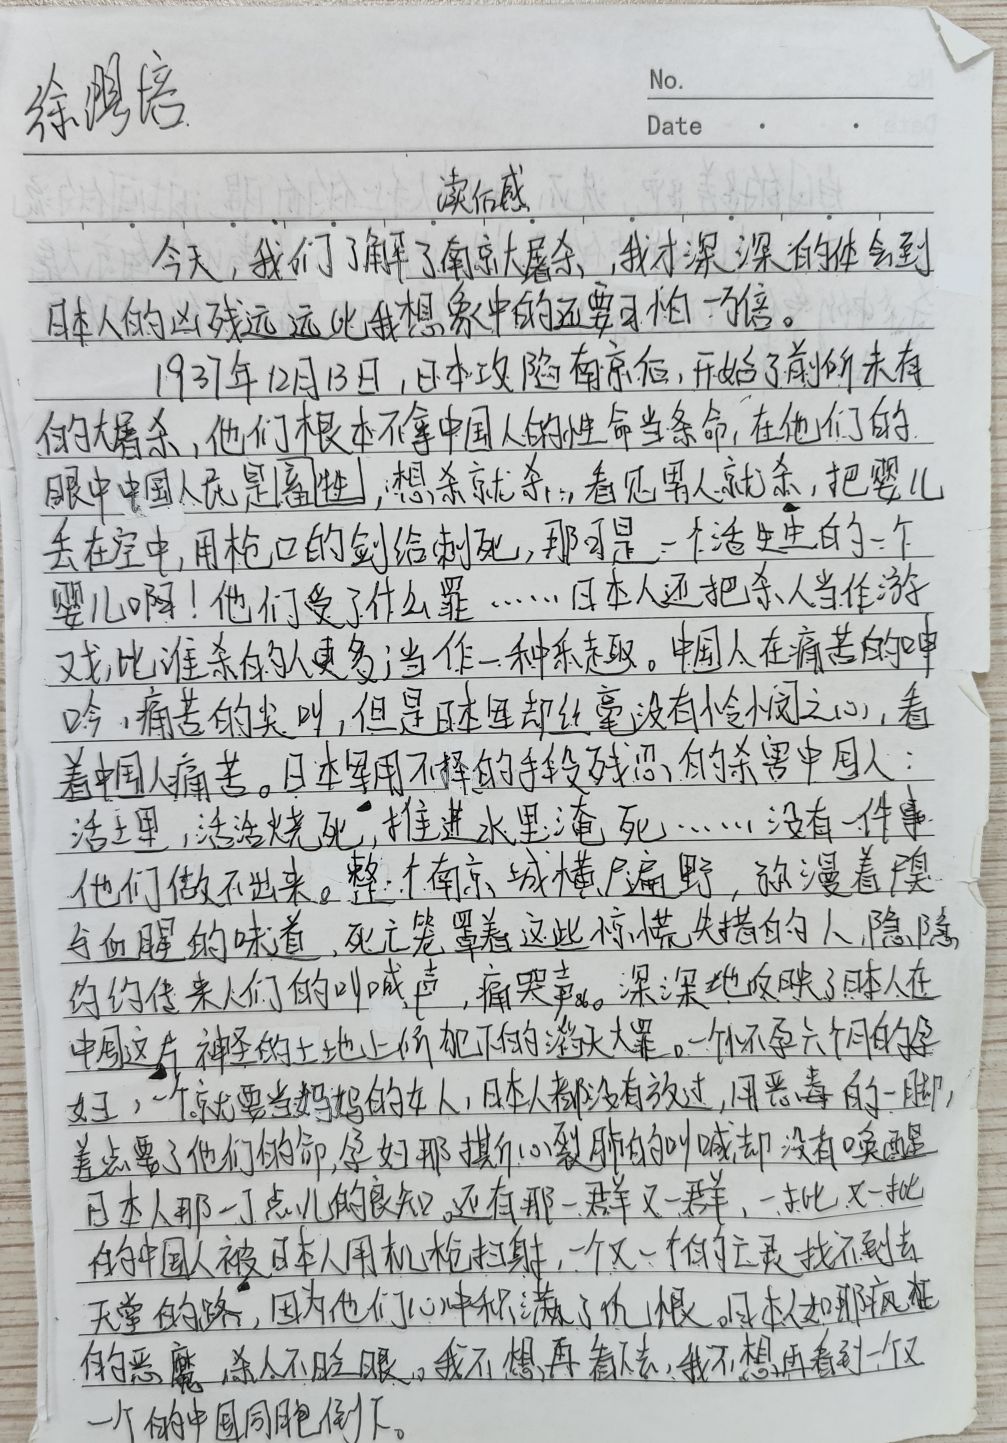 徐鹏培
No.
Date
读后感
今天,我们了解了南京大屠杀,我才深深的体会到
日本人的凶残远远比我想象中的还要可怕一万倍。
1937年12月13日,日本攻陷南京后,开始了前所未有
的大屠杀,他们根本不拿中国人的性命当条命,在他们的
眼中中国人民是畜牲,想杀就杀……看见男人就杀,把婴儿
丢在空中,用枪口的剑给刺死,那可是一个活生生的一个
婴儿啊!他们受了什么罪……日本人还把杀人当作游
戏,比谁杀的人更多;当作一种乐趣。中国人在痛苦的呻
吟,痛苦的尖叫,但是日本军却丝毫没有怜悯之心,看
着中国人痛苦。日本军用不择的手段残忍的杀害中国人:
活土里,活活烧死,推进水里淹死……没有一件事
他们做不出来。整个南京城横尸遍野,弥漫着尸臭
与血腥的味道,死亡笼罩着这些惊慌失措的人,隐隐
约约传来人们的叫喊声,痛哭声。深深地反映了日本人在
中国这片神圣的土地上所犯下的滔天大罪。一个怀孕六个月的孕
妇,一个就要当妈妈的女人,日本人都没有放过,用恶毒的一脚,
差点要了他们的命,孕妇那撕心裂肺的叫喊却没有唤醒
日本人那一丁点儿的良知。还有那一群又一群,一批又一批
的中国人被日本人用机枪扫射,一个又一个的亡灵找不到去
天堂的路,因为他们心中积满了仇恨。日本人如那疯狂
的恶魔,杀人不眨眼。我不想再看下去,我不想再看到一个又
一个的中国同胞倒下。